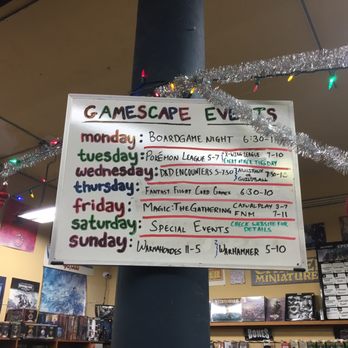 GAMESCAPE EVENTS
monday: BOARDGAME NIGHT 6:30-
tuesday: POKÉMON LEAGUE 5-7 X-WING LEAGUE EVERY OTHER TUESDAY 7-10
wednesday: D&D ENCOUNTERS 5-7:30
thursday: FANTASY FLIGHT CARD GAMES 6:30-10
friday: MAGIC: THE GATHERING CASUAL PLAY 3-7 FNM 7-11
saturday: SPECIAL EVENTS CHECK WEBSITE FOR DETAILS
sunday: WARMAHORDES 11-5 WARHAMMER 5-10
MINIATURE
BONES